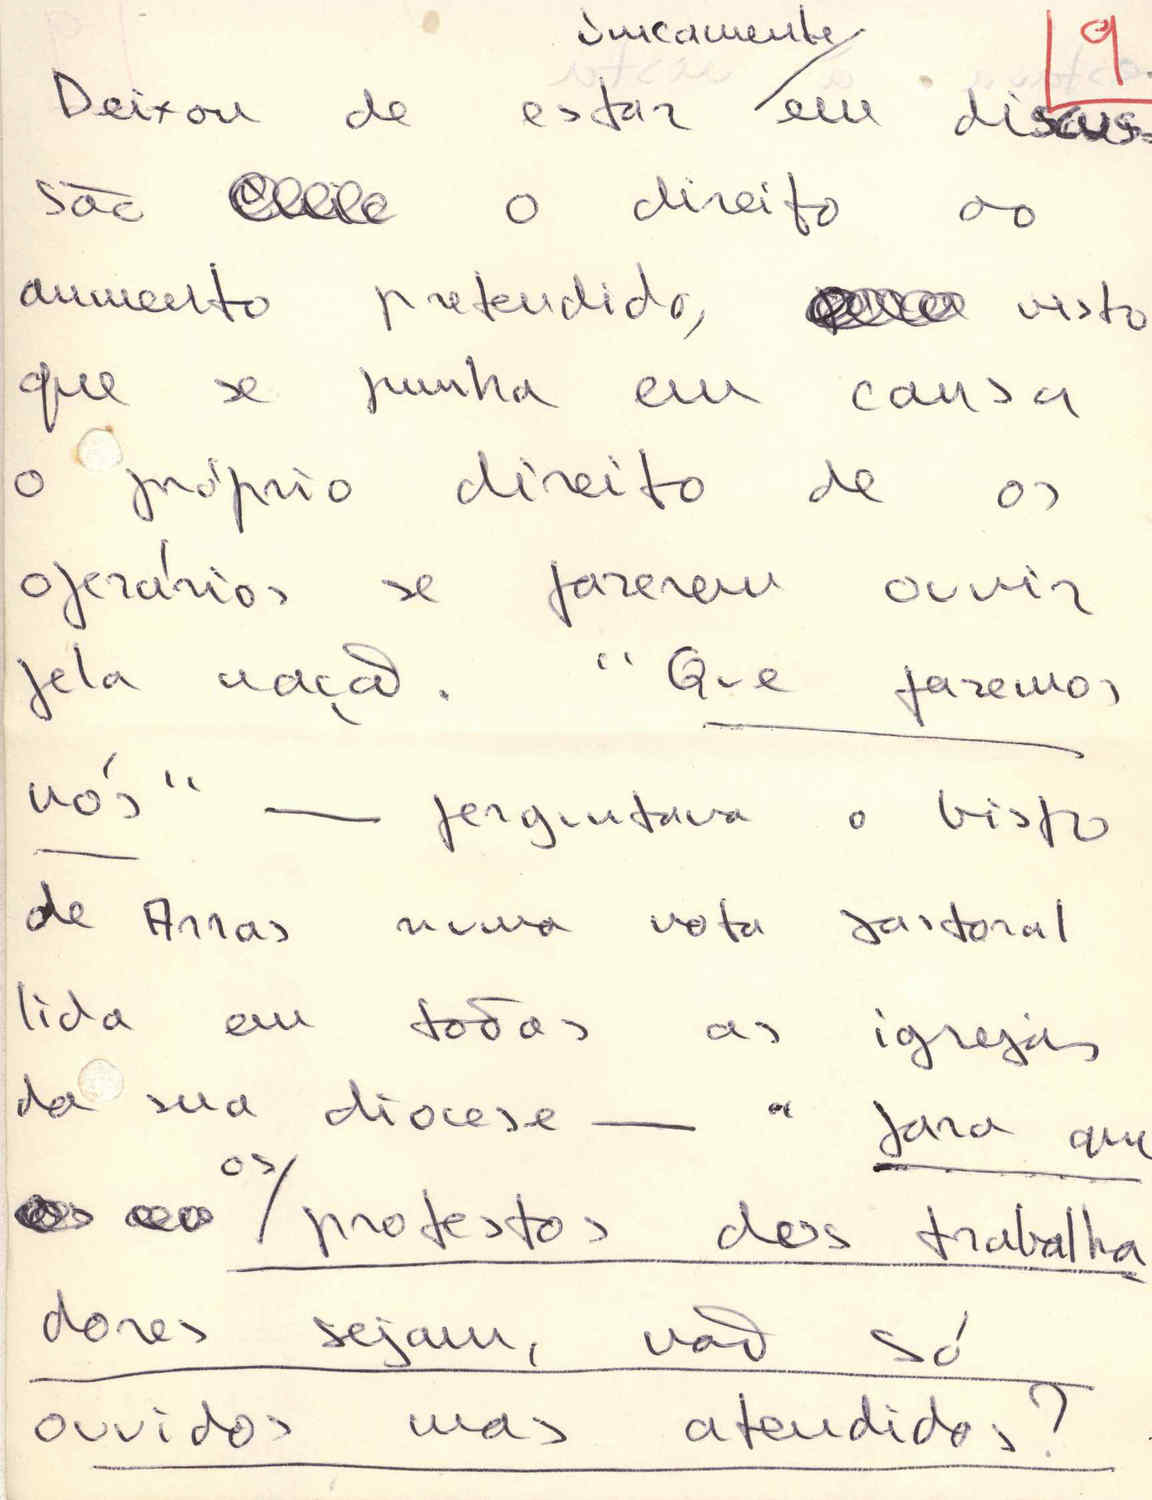 9
ùnicamente
Deixou de estar em discus-
são o direito ao
aumento pretendido, visto
que se punha em causa
o próprio direito de os
operários se fazerem ouvir
pela nação. "Que faremos
nós" — perguntava o bispo
de Arras numa nota pastoral
lida em todas as igrejas
da sua diocese — "para que
os
protestos dos trabalha
dores sejam, não só
ouvidos mas atendidos?